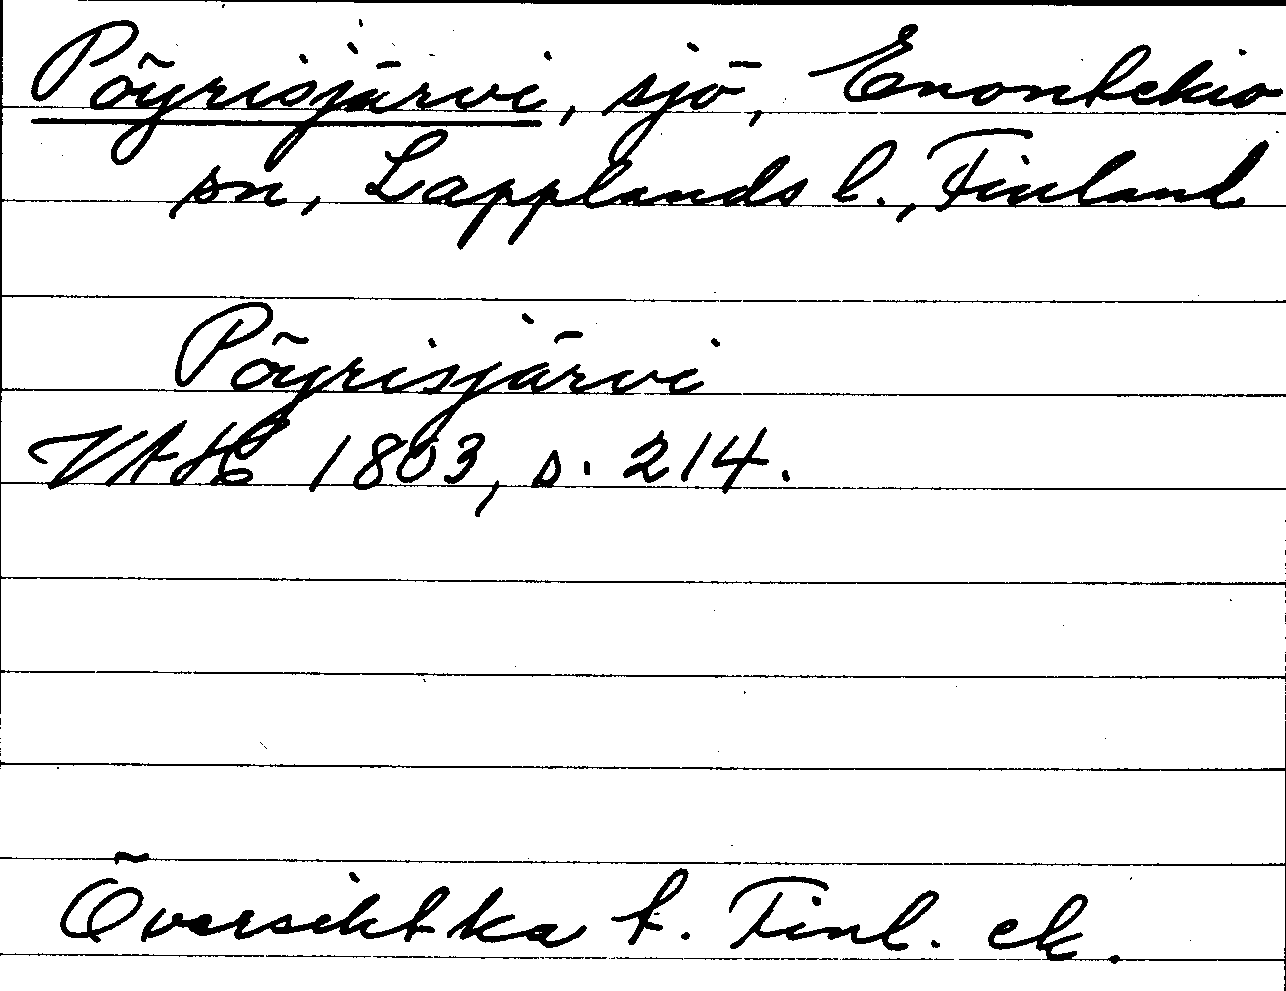 Pöyrisjärvi, sjö, Enontekio
sn, Lapplands l., Finland
Pöyrisjärvi
VAH 1803, s. 214.
Översiktka t. Finl. ek.